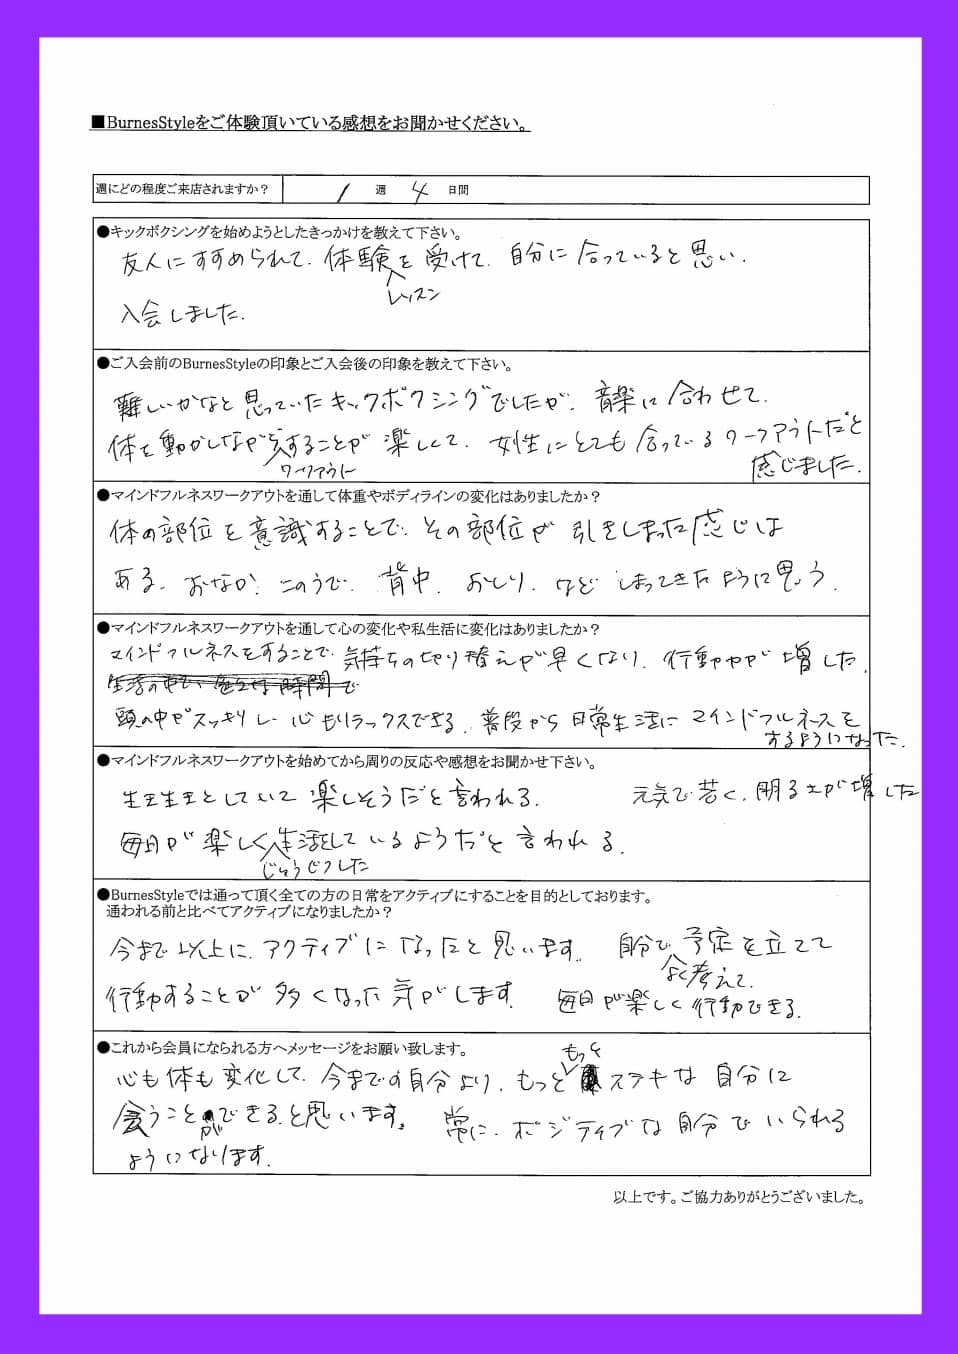 ■BurnesStyleをご体験頂いている感想をお聞かせください。
週にどの程度ご来店されますか？ 1 週 4 日間
●キックボクシングを始めようとしたきっかけを教えて下さい。
友人にすすめられて、体験を受けて、自分に合っていると思い、
レッスン
入会しました。
●ご入会前のBurnesStyleの印象とご入会後の印象を教えて下さい。
難しいかなと思っていたキックボクシングでしたが、音楽に合わせて、
体を動かしながらすることが楽しくて、女性にとても合っているワークアウトだと
ワークアウト
感じました。
●マインドフルネスワークアウトを通して体重やボディラインの変化はありましたか？
体の部位を意識することで、その部位が引きしまった感じは
ある。おなか、二のうで、背中、おしり、などしまってきたように思う。
●マインドフルネスワークアウトを通して心の変化や私生活に変化はありましたか？
マインドフルネスをすることで、気持ちの切り替えが早くなり、行動力が増した。
頭の中がスッキリし、心もリラックスできる。普段から日常生活にマインドフルネースを
するようになった。
●マインドフルネスワークアウトを始めてから周りの反応や感想をお聞かせ下さい。
生き生きとしていて楽しそうだと言われる。 元気で若く、明るさが増した
毎日が楽しく生活しているようだと言われる。
じゅうじつした
●BurnesStyleでは通って頂く全ての方の日常をアクティブにすることを目的としております。
通われる前と比べてアクティブになりましたか？
今まで以上に、アクティブになったと思います。 自分で予定を立てて
よく考えて、
行動することが多くなった気がします。 毎日が楽しく行動できる。
●これから会員になられる方へメッセージをお願い致します。
もっと
心も体も変化して、今までの自分より、もっとステキな自分に
会うことができると思います。 常に、ポジティブな自分でいられる
ようになります。
以上です。ご協力ありがとうございました。